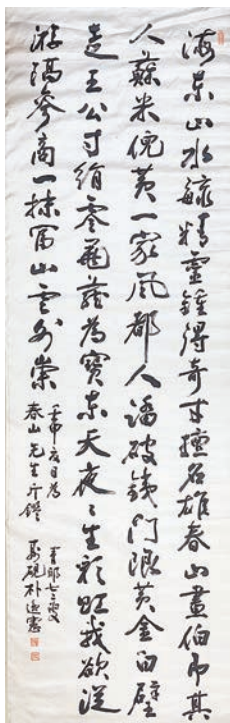 海東山水毓精靈鍾得奇才擅名雄春山畫伯即其
人蘇米倪黃一家風都人踏破鐵門限黃金白璧
走王公寸絹零縑藏為寶東天夜〻生彩虹我欲從
游隔參商一抹山雲外崇
壬申夏日為
春山先生斤
七十二叟
硯朴